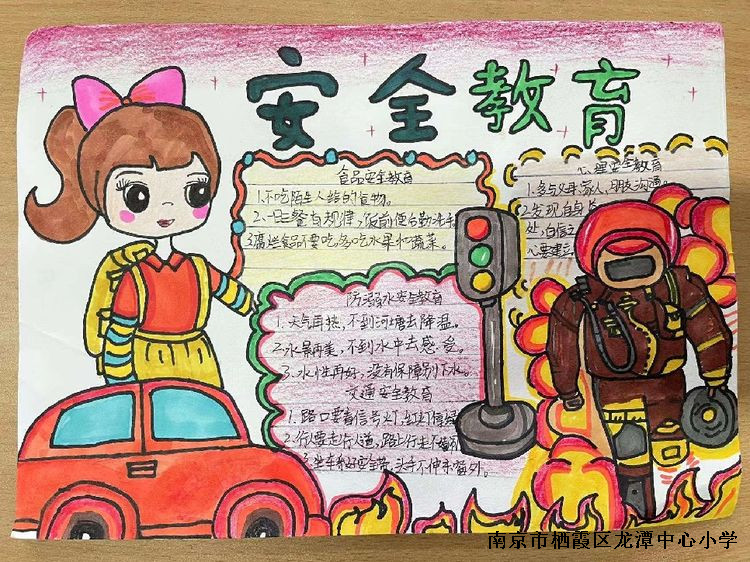 安全教育
食品安全教育
1.不吃陌生人给的食物。
2.一日三餐有规律,饭前便后勤洗手
3.腐烂食品不要吃,多吃水果和蔬菜。
心理安全教育
1.多与父母,家人,朋友沟通。
2.发现自身长
处,自信
心要建立
防溺水安全教育
1.天气再热,不到河塘去降温。
2.水景再美,不到水中去感受。
3.水性再好,没有保障别下水。
交通安全教育
1.路口要看信号灯,红灯停绿
2.行人要走行人道,路上行走不
3.坐车系好安全带,头手不伸车窗外。
南京市栖霞区龙潭中心小学